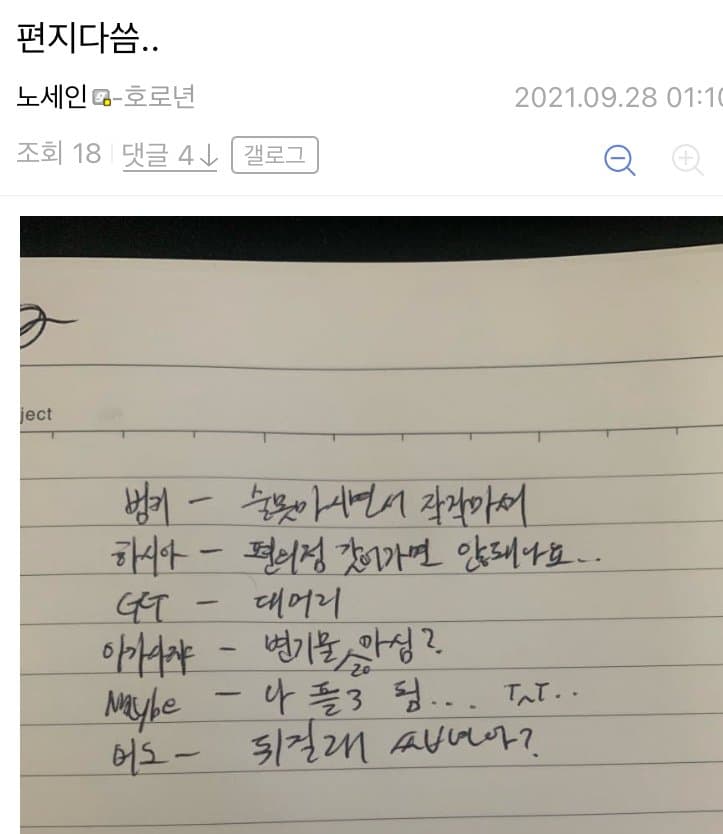 편지다씀..
노세인-호로년 2021.09.28 01:10
조회 18 댓글 4↓ 갤로그
ject
벙키 - 술못마시면서 작작마셔
하시아 - 편의점 갔이가면 않돼나요...
GGT - 대머리
아가여자 - 변기물 마심?
20
Maybe - 나 플3 됨... T^T..
버도 - 뒤질래 쓰บ년아?